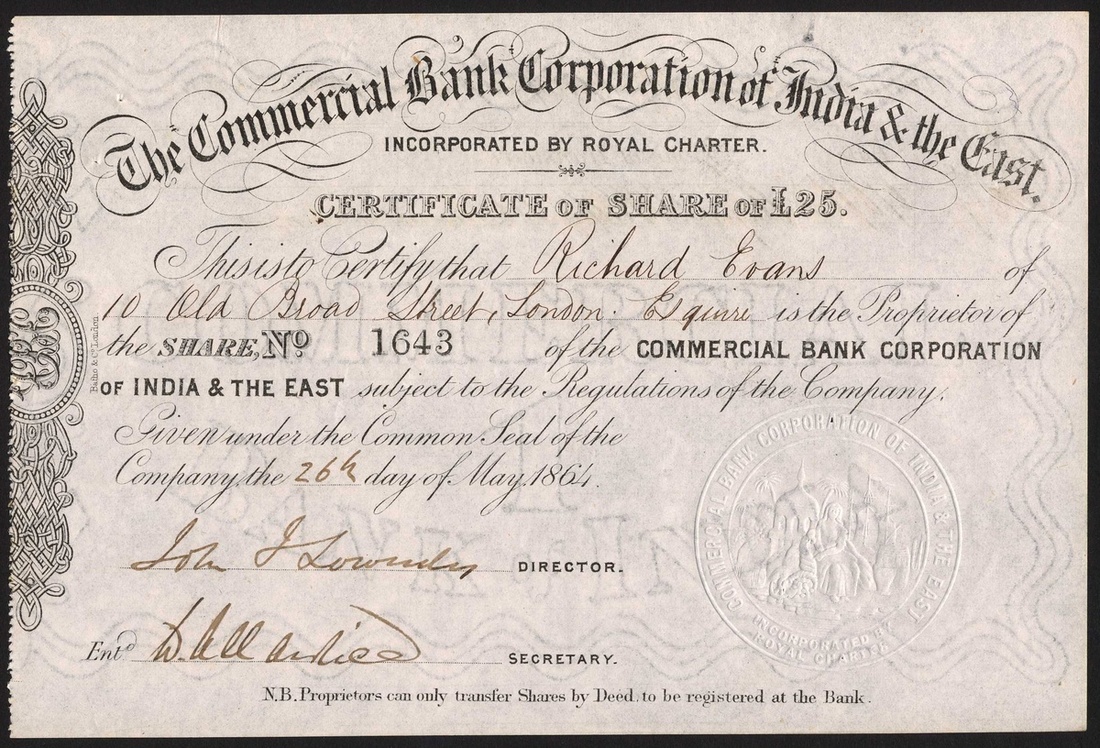 The Commercial Bank Corporation of India & the East.
INCORPORATED BY ROYAL CHARTER.
CERTIFICATE OF SHARE OF £25.
This is to Certify that Richard Evans of
10 Old Broad Street, London. Esquire is the Proprietor of
the SHARE, No 1643 of the COMMERCIAL BANK CORPORATION
OF INDIA & THE EAST subject to the Regulations of the Company.
Given under the Common Seal of the
Company, the 26th day of May, 1864.
John J Lowndes DIRECTOR.
Entd SECRETARY.
N.B. Proprietors can only transfer Shares by Deed, to be registered at the Bank.
COMMERCIAL BANK CORPORATION OF INDIA & THE EAST
INCORPORATED BY
ROYAL CHARTER